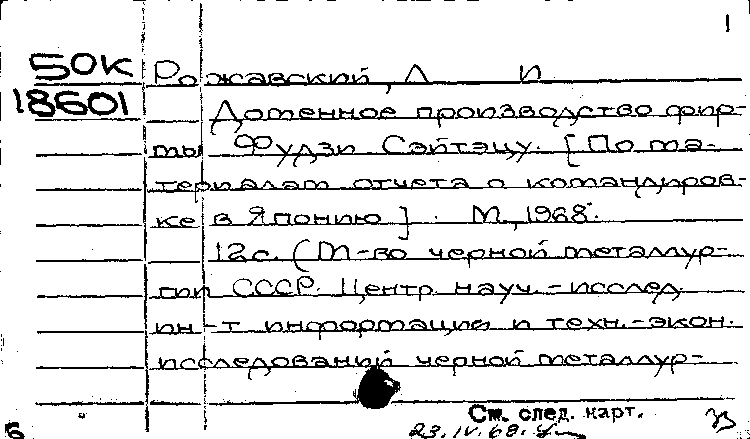 1
50К Рожавский, Л И
18601 Доменное производство фир-
мы Фудзи Сэйтэцу. [По ма-
териалам отчета о командиров-
ке в Японию]. М., 1968.
12с. (М-во черной металлур-
гии СССР. Центр. науч.-исслед.
ин-т информации и техн.-экон.
исследований черной металлур-
См. след. карт.
6 23.IV.68.